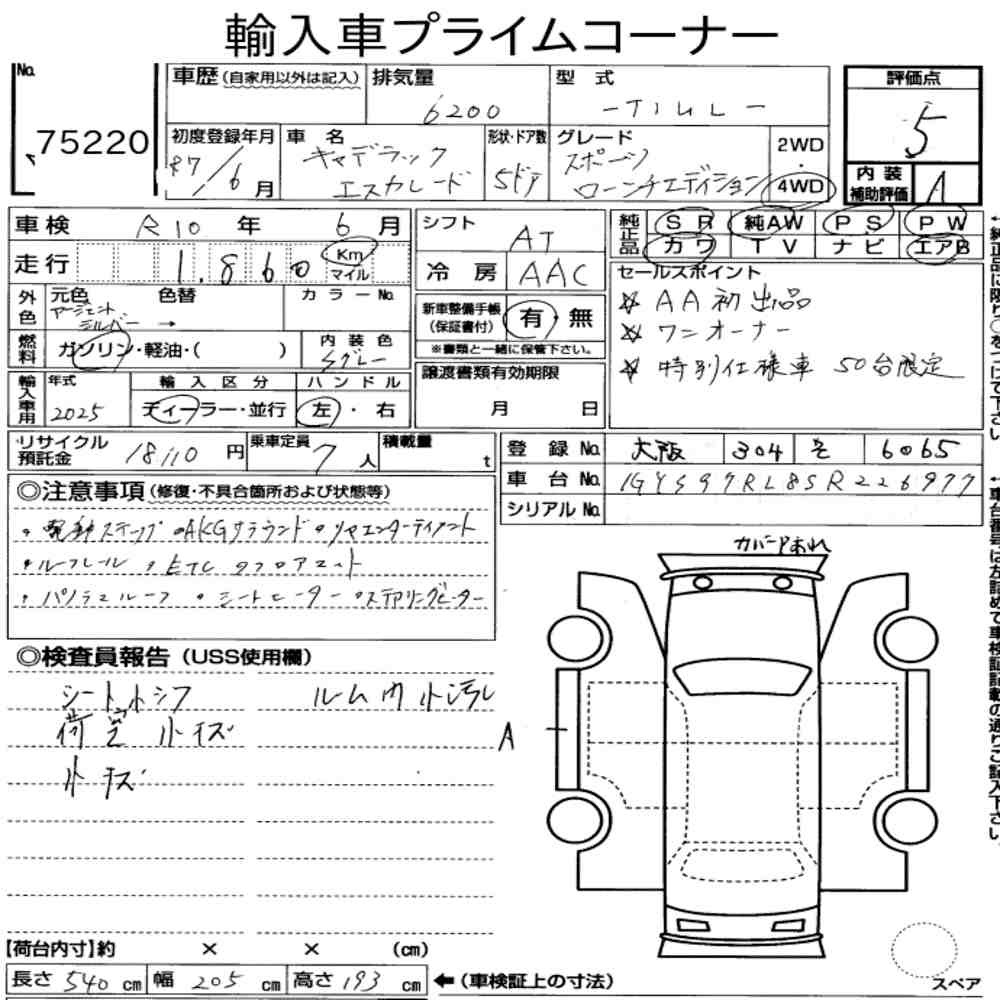 輸入車プライムコーナー
No. 75220
車歴(自家用以外は記入)
排気量 6200
型式 -T1UL-
評価点 5
初度登録年月 R7/6月
車名 キャデラック エスカレード
形状・ドア数 5ドア
グレード スポーツ ローンチエディション
2WD・4WD
内装補助評価 A
車検 R10年 6月
走行 1,860 Km マイル
シフト AT
冷房 AAC
純正品 SR 純AW PS PW
カワ TV ナビ エアB
外色 元色 アージェントシルバー → 色替 カラーNo.
燃料 ガソリン・軽油・( )
内装色 Sグレー
新車整備手帳(保証書付) 有・無
※書類と一緒に保管下さい。
セールスポイント
☆ AA初出品
☆ ワンオーナー
☆ 特別仕様車 50台限定
輸入車用 年式 2025
輸入区分 ディーラー・並行
ハンドル 左・右
譲渡書類有効期限 月 日
リサイクル預託金 18110円
乗車定員 7人
積載量 t
登録No. 大阪 304 そ 6065
車台No. 1GYS97RL8SR226977
シリアルNo.
◎注意事項(修復・不具合箇所および状態等)
・電動ステップ ・AKGサラウンド ・リヤエンターテイメント
・ルーフレール ・ETC ・フロアマット
・パノラマルーフ ・シートヒーター ・ステアリングヒーター
◎検査員報告(USS使用欄)
シート小シワ ルーム内小汚レ
荷室小キズ
小キズ
カバードあれ
A
【荷台内寸】約 × × (cm)
長さ 540 cm 幅 205 cm 高さ 193 cm
←(車検証上の寸法)
スペア
↑純正品に限り○をつけて下さい。
↑車台番号は左詰めで車検証記載の通りご記入下さい。